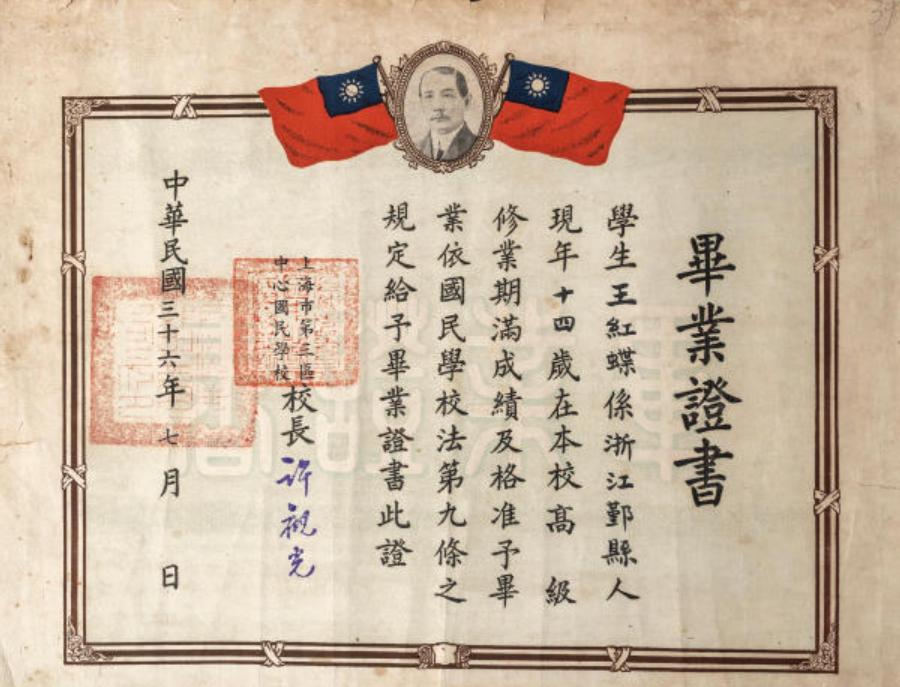 畢業證書
學生王紅蝶係浙江鄞縣人
現年十四歲在本校高 級
修業期滿成績及格准予畢
業依國民學校法第九條之
規定給予畢業證書此證
上海市第三區
中心國民學校
校長 許觀光
中華民國三十六年七月 日